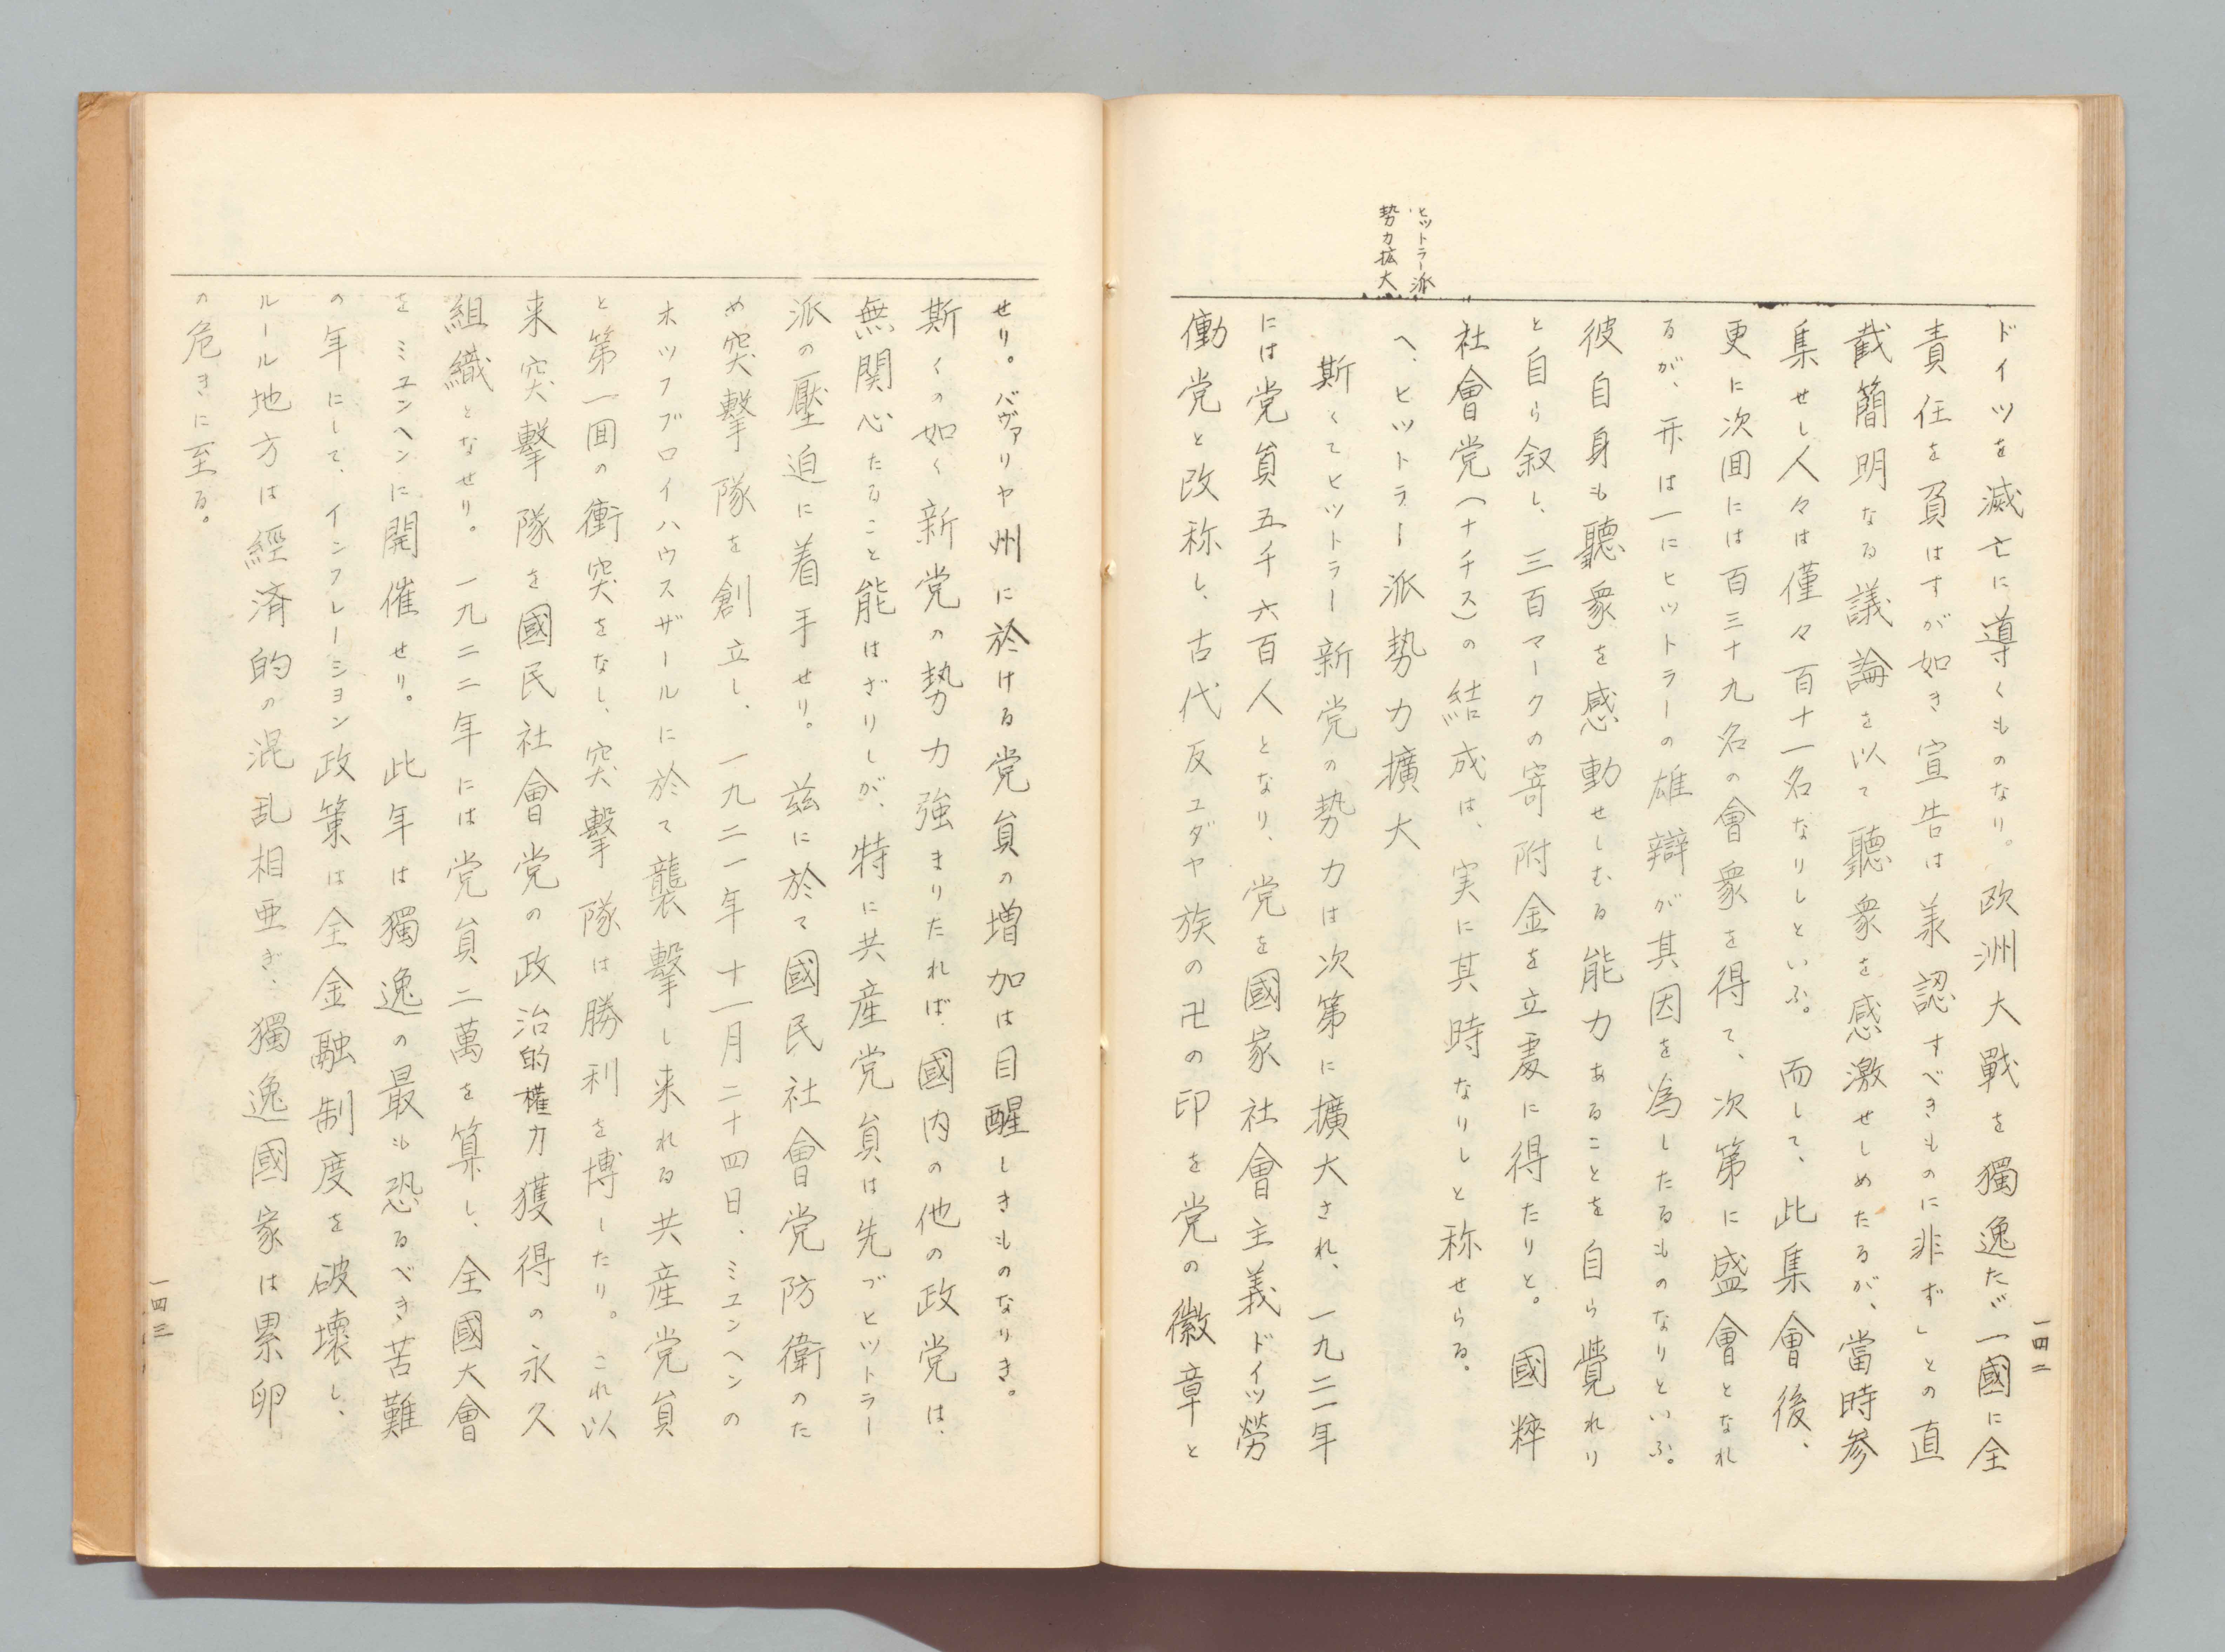 一四二
ヒットラー派
勢力拡大
ドイツを滅亡に導くものなり。欧洲大戰を獨逸たゞ一國に全
責任を負はすが如き宣告は承認すべきものに非ず」との直
截簡明なる議論を以て聽衆を感激せしめたるが、當時参
集せし人々は僅々百十一名なりしといふ。而して、此集會後、
更に次回には百三十九名の會衆を得て、次第に盛會となれ
るが、开は一にヒットラーの雄辯が其因を為したるものなりといふ。
彼自身も聽衆を感動せしむる能力あることを自ら覺れり
と自ら叙し、三百マークの寄附金を立處に得たりと。國粹
社會党(ナチス)の結成は、実に其時なりしと称せらる。
へ、ヒットラー派勢力擴大
斯くてヒットラー新党の勢力は次第に擴大され、一九二一年
には党員五千六百人となり、党を國家社會主義ドイツ勞
働党と改称し、古代反ユダヤ族の卍の印を党の徽章と
せり。バヴァリヤ州に於ける党員の増加は目醒しきものなりき。
斯くの如く新党の勢力強まりたれば、國内の他の政党は、
無関心たること能はざりしが、特に共産党員は先づヒットラー
派の壓迫に着手せり。茲に於て國民社會党防衛のた
め突擊隊を創立し、一九二一年十一月二十四日、ミュンヘンの
ホッフブロイハウスザールに於て襲擊し来れる共産党員
と第一回の衝突をなし、突擊隊は勝利を博したり。これ以
来突擊隊を國民社會党の政治的權力獲得の永久
組織となせり。一九二二年には党員二萬を算し、全國大會
をミュンヘンに開催せり。此年は獨逸の最も恐るべき苦難
の年にして、インフレーション政策は全金融制度を破壞し、
ルール地方は經済的の混乱相亜ぎ、獨逸國家は累卵
の危きに至る。
一四三